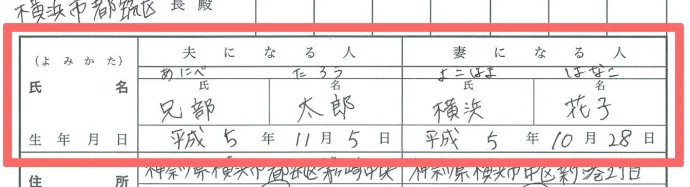 横浜市都筑区長殿
夫になる人 妻になる人
(よみかた) あにべ たろう よこはま はなこ
氏名 氏 名 氏 名
兄部 太郎 横浜 花子
生年月日 平成 5年 11月 5日 平成 5年 10月 28日
住所 神奈川県横浜市都筑区茅ケ崎中央 神奈川県横浜市中区新港2丁目